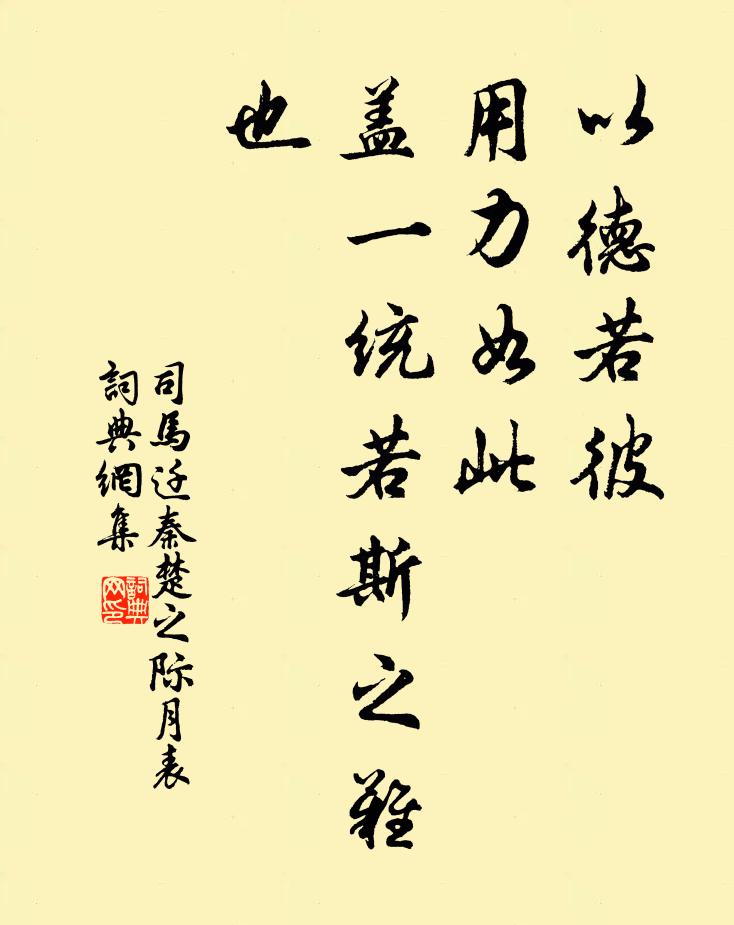 以德若彼
用力如此
盖一统若斯之難
也
司馬迁秦楚之际月表
詞典網集
詞典网印